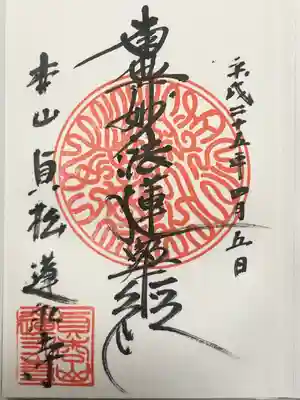 平成二十五年四月五日
南無妙法蓮華経
本山貞松蓮永寺